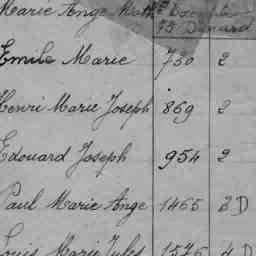 Marie Ange Math
Emile Marie 730 2
Henri Marie Joseph 869 2
Edouard Joseph 954 2
Paul Marie Ange 1465 3 D
Louis Marie Jules 1576 4 D